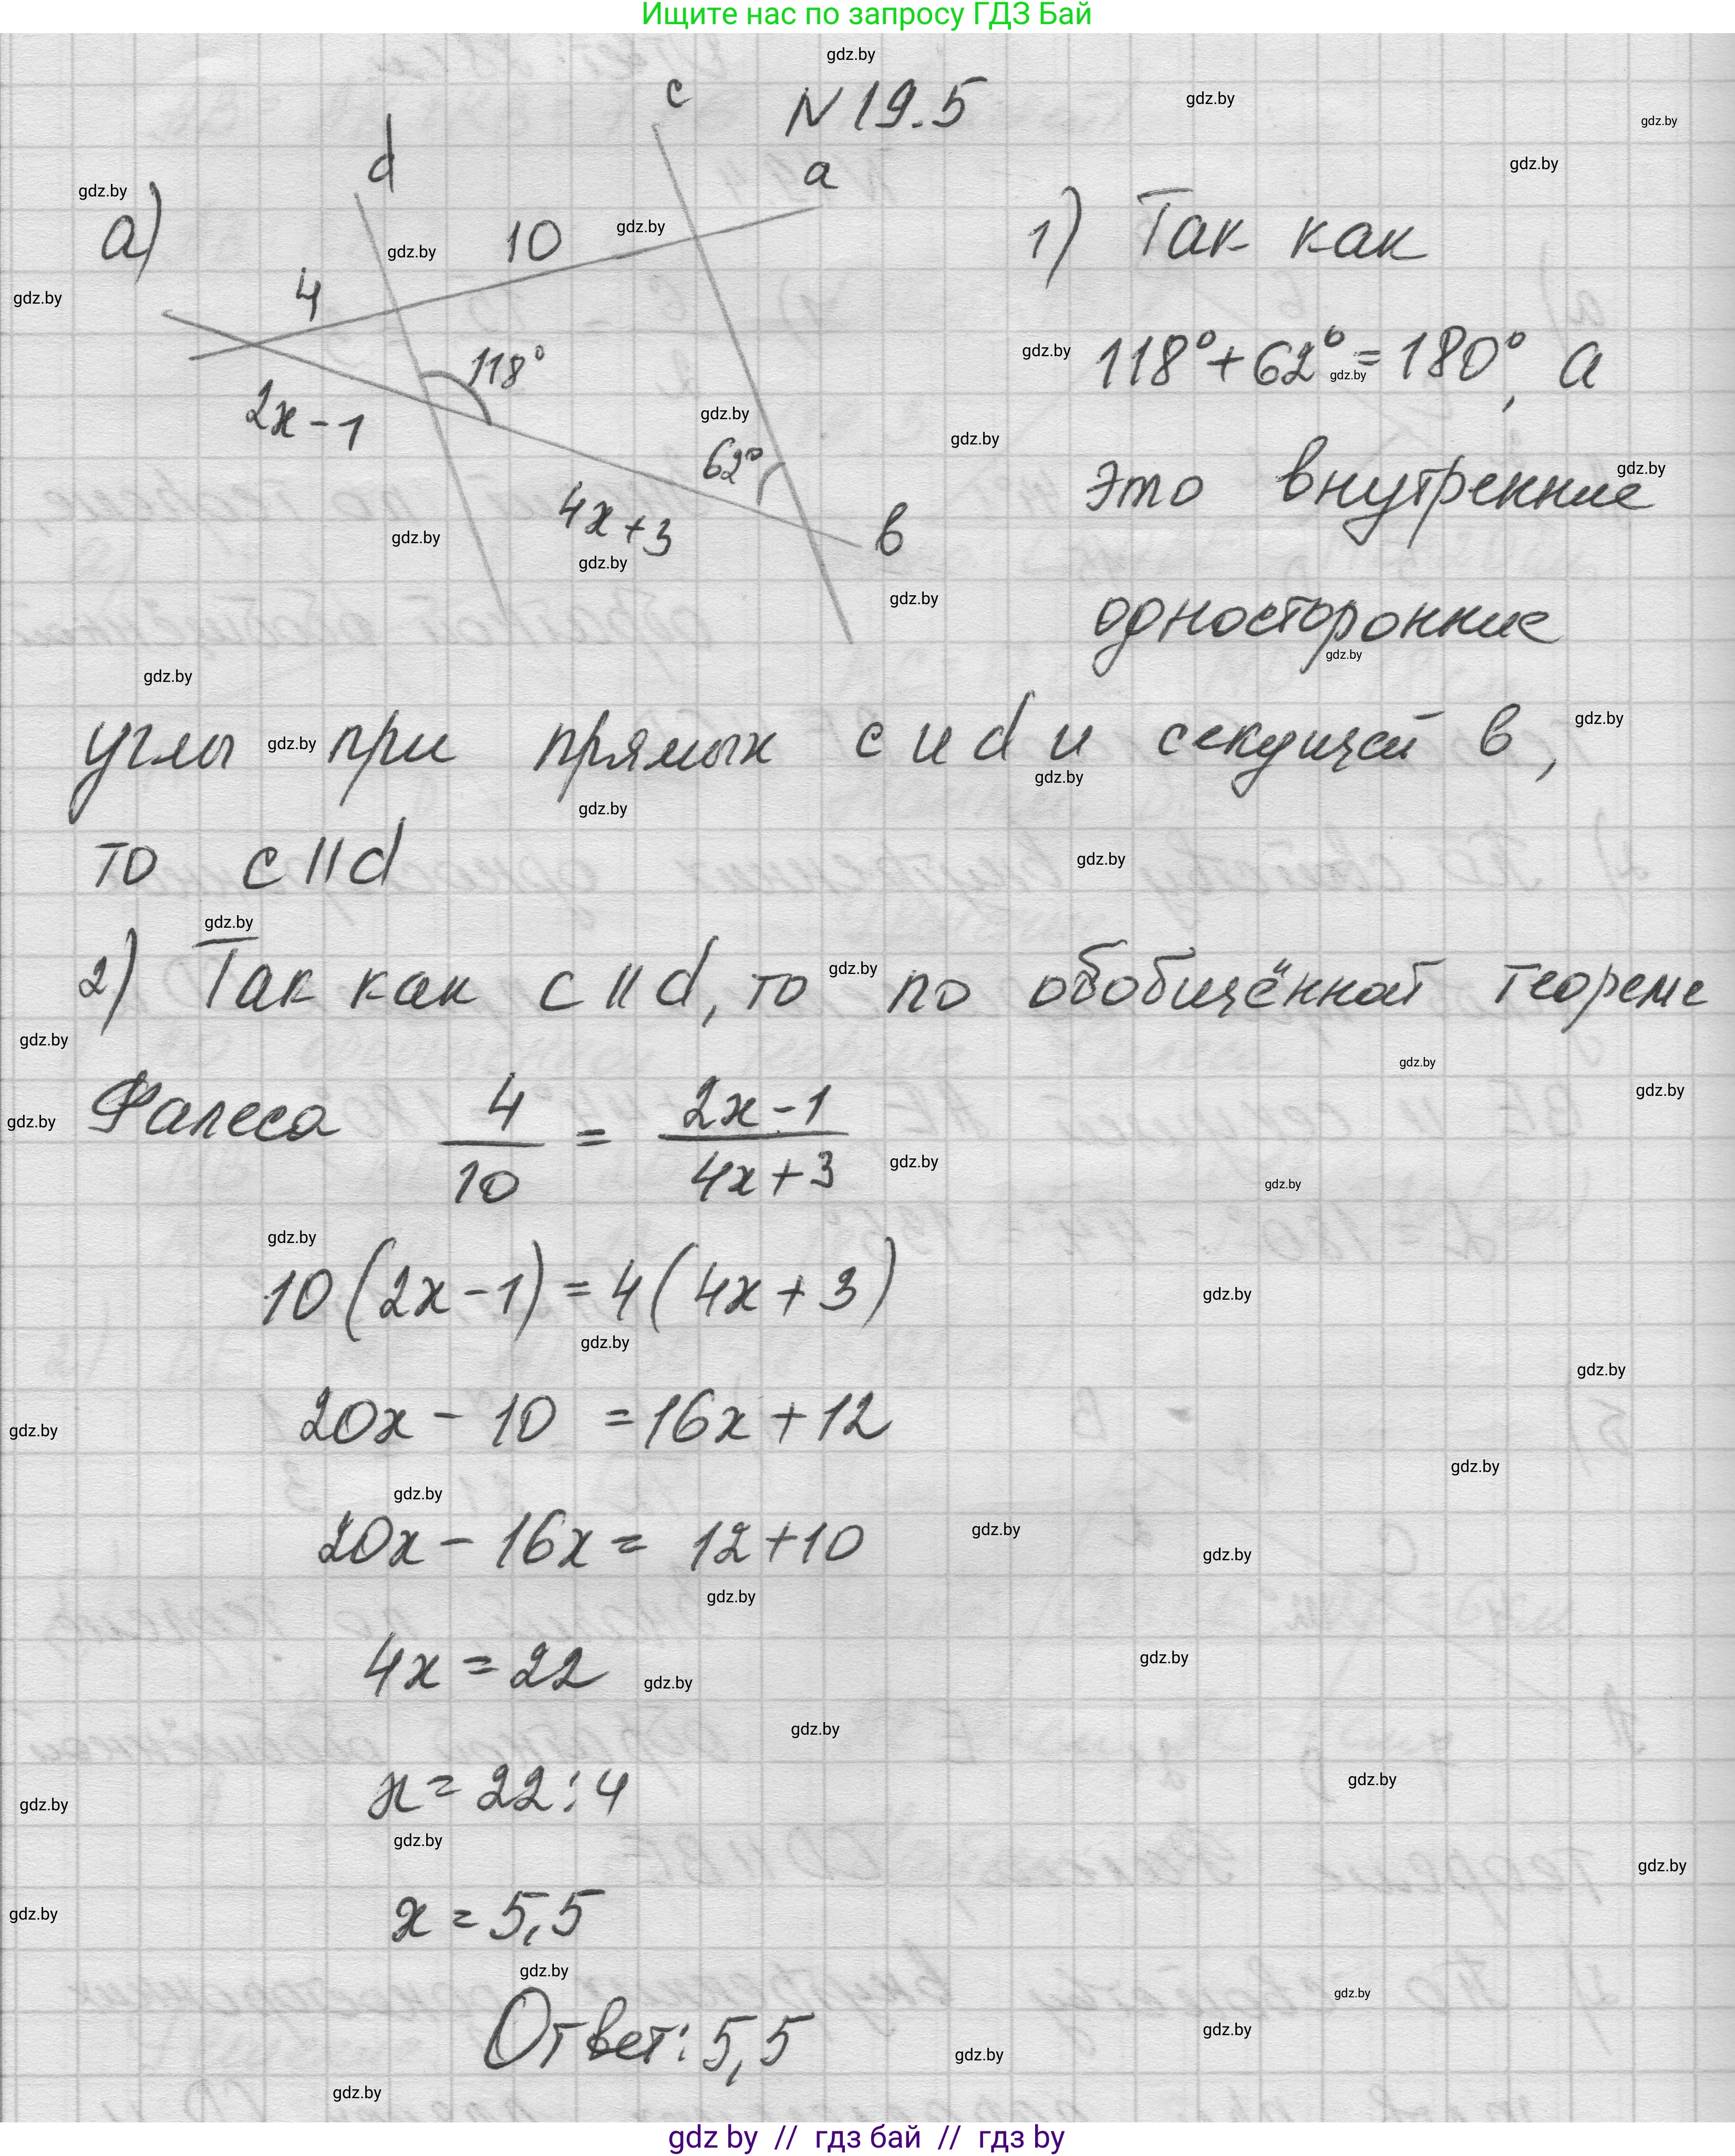 Ищите нас по запросу ГДЗ Бай
N 19.5
а)
d
c
a
10
4
118°
2x-1
62°
4x+3
b
1) Так как
118°+62°=180°, а
это внутренние
односторонние
углы при прямых c и d и секущей b,
то c||d
2) Так как c||d, то по обобщённой теореме
Фалеса 4/10 = 2x-1/4x+3
10(2x-1)=4(4x+3)
20x-10=16x+12
20x-16x=12+10
4x=22
x=22:4
x=5,5
Ответ: 5,5
gdz by // гдз бай // гдз by